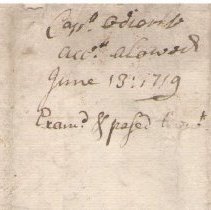 Capt. Odiorne
acct. alowed
June 13: 1719
Examd. & pased